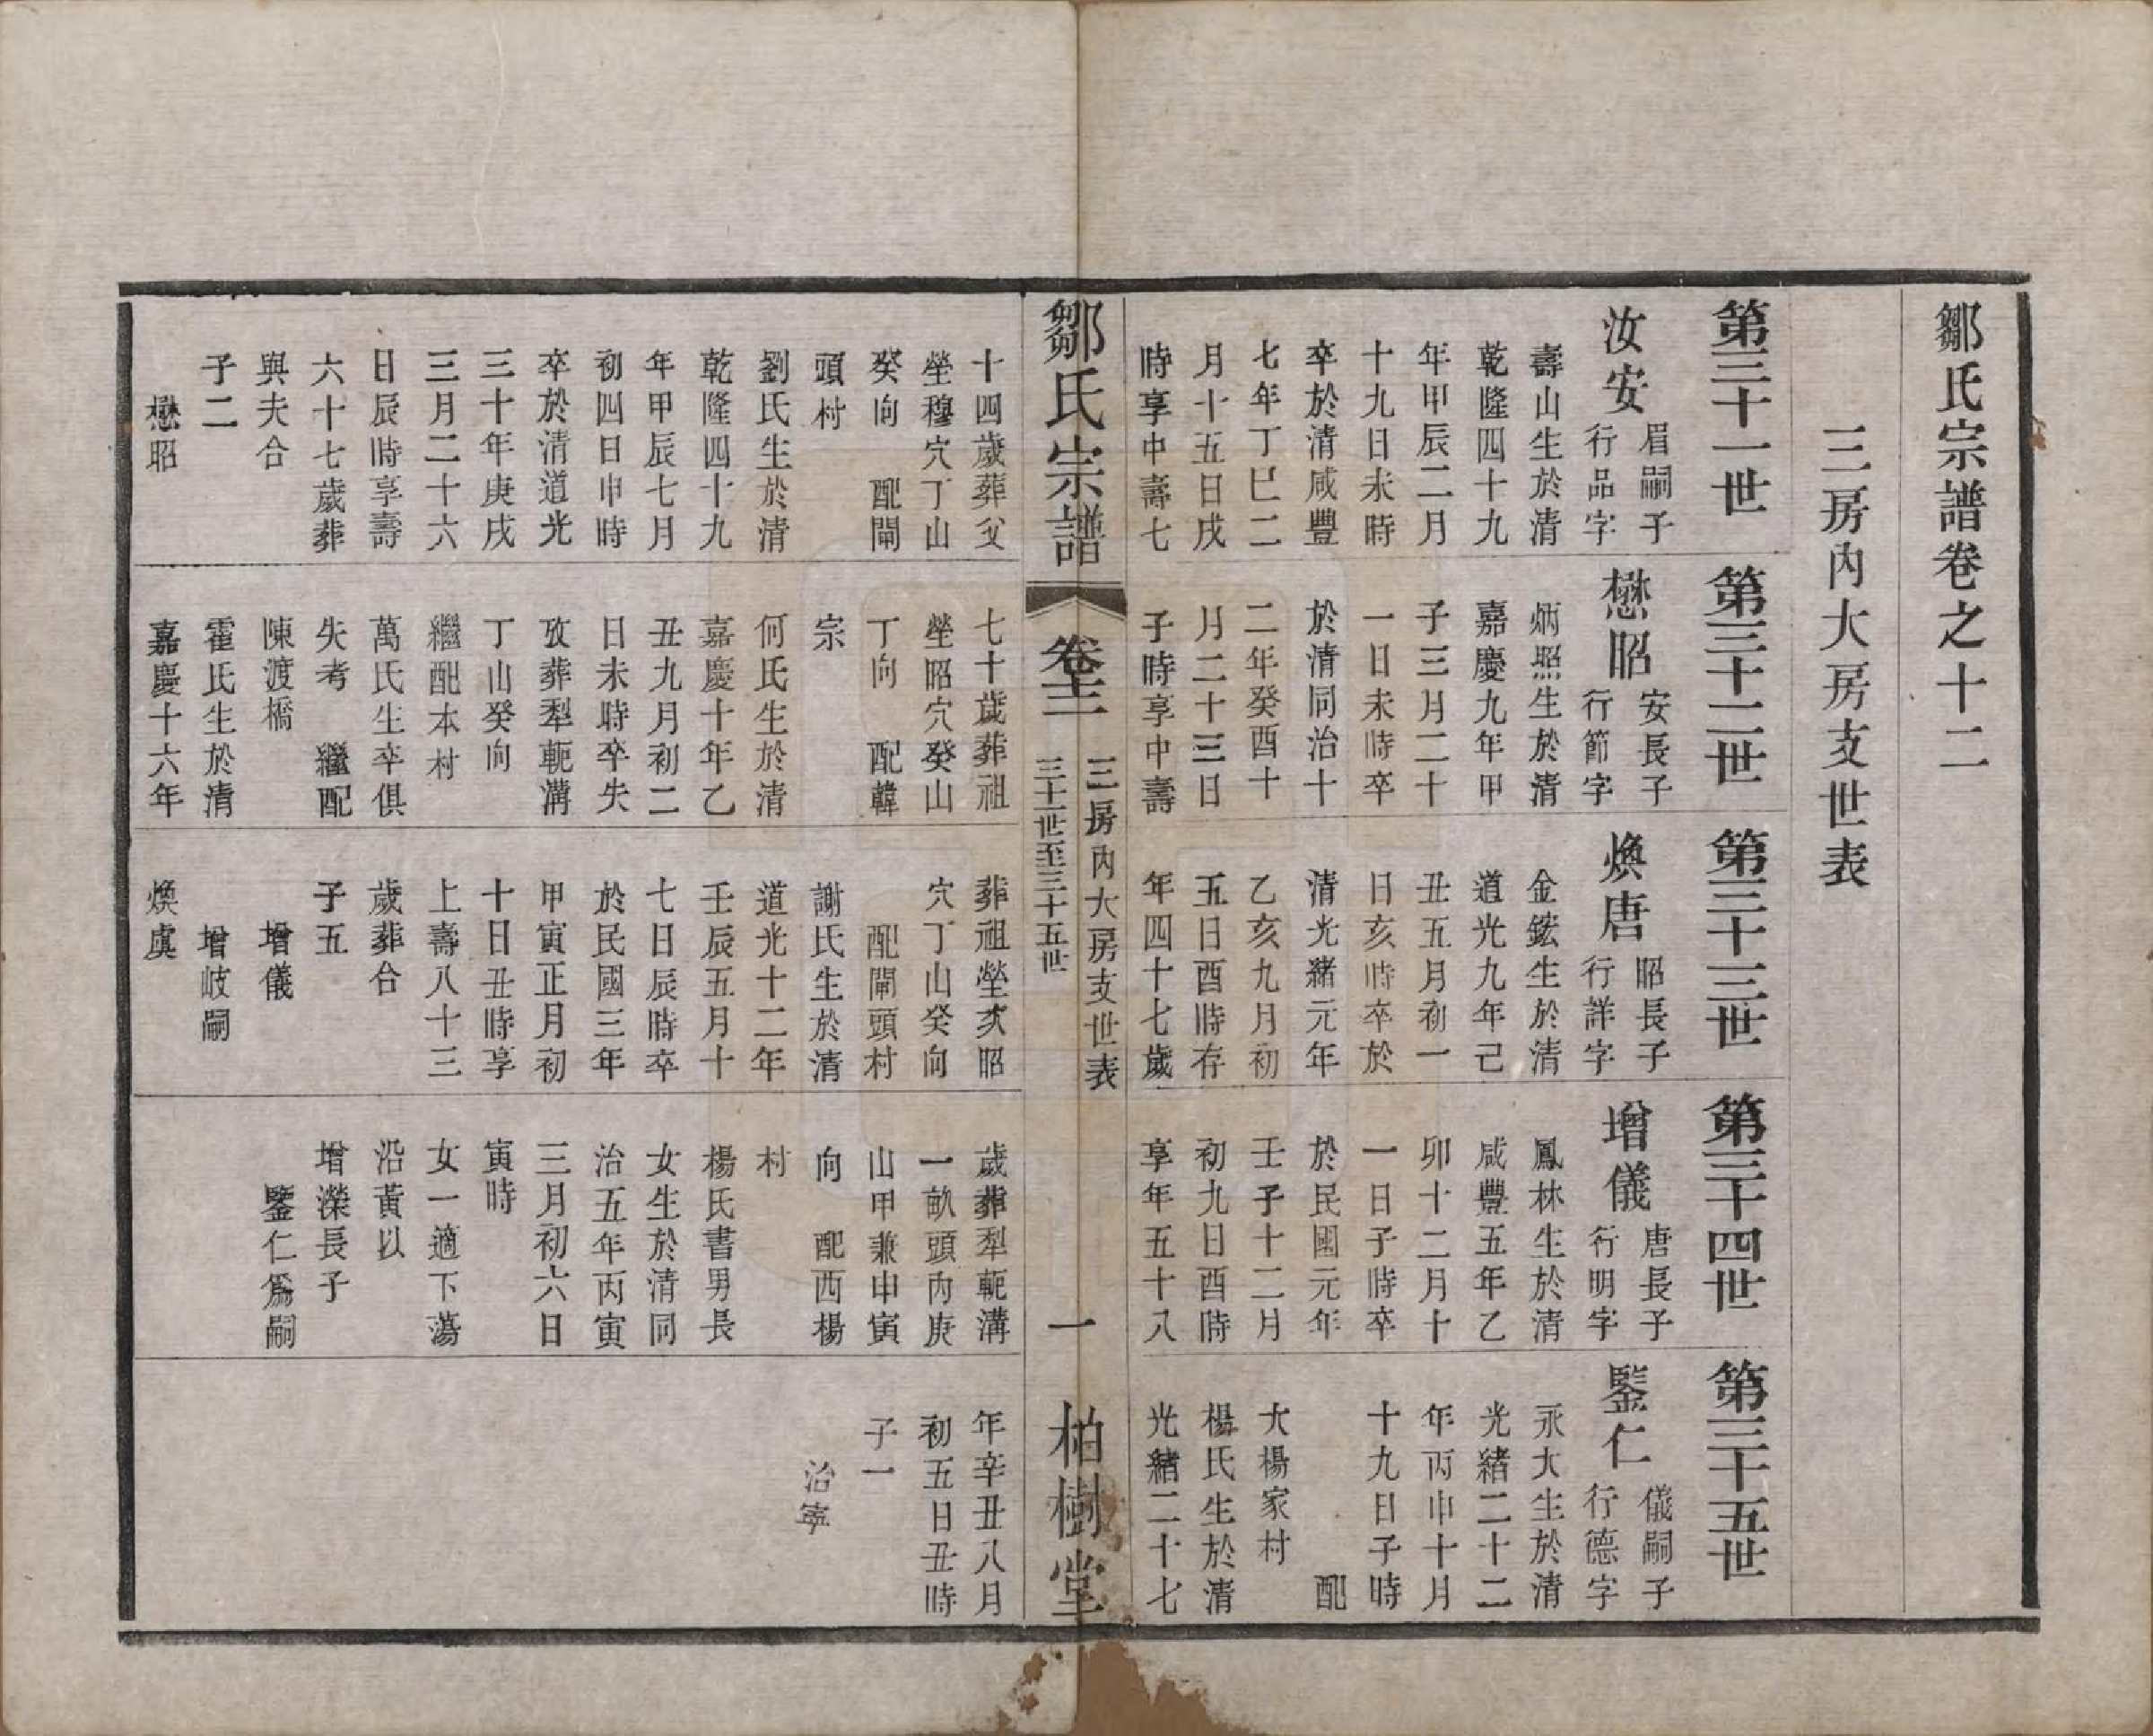 鄒氏宗譜卷之十二
三房內大房支世表
第三十一世
汝安
眉嗣子
行品字
壽山生於清
乾隆四十九
年甲辰二月
十九日未時
卒於清咸豐
七年丁巳二
月十五日戌
時享中壽七
第三十二世
懋昭
安長子
行節字
炳照生於清
嘉慶九年甲
子三月二十
一日未時卒
於清同治十
二年癸酉十
月二十三日
子時享中壽
第三十三世
煥唐
昭長子
行詳字
金鋐生於清
道光九年己
丑五月初一
日亥時卒於
清光緒元年
乙亥九月初
五日酉時存
年四十七歲
第三十四世
增儀
唐長子
行明字
鳳林生於清
咸豐五年乙
卯十二月十
一日子時卒
於民國元年
壬子十二月
初九日酉時
享年五十八
第三十五世
鑒仁
儀嗣子
行德字
永大生於清
光緒二十二
年丙申十月
十九日子時
配
大楊家村
楊氏生於清
光緒二十七
鄒氏宗譜
卷十二
三房內大房支世表
三十一世至三十五世
一
柏樹堂
十四歲葬父
塋穆穴丁山
癸向 配閘
頭村
劉氏生於清
乾隆四十九
年甲辰七月
初四日申時
卒於清道光
三十年庚戌
三月二十六
日辰時享壽
六十七歲葬
與夫合
子二
懋昭
七十歲葬祖
塋昭穴癸山
丁向 配韓
宗
何氏生於清
嘉慶十年乙
丑九月初二
日未時卒失
攷葬犁軛溝
丁山癸向
繼配本村
萬氏生卒俱
失考 繼配
陳渡橋
霍氏生於清
嘉慶十六年
葬祖塋亥昭
穴丁山癸向
配閘頭村
謝氏生於清
道光十二年
壬辰五月十
七日辰時卒
於民國三年
甲寅正月初
十日丑時享
上壽八十三
歲葬合
子五
增儀
增岐嗣
煥虞
歲葬犁軛溝
一畝頭內庚
山甲兼申寅
向 配西楊
村
楊氏書男長
女生於清同
治五年丙寅
三月初六日
寅時
女一適下蕩
沿黃以
增濚長子
鑒仁爲嗣
年辛丑八月
初五日丑時
子一
治寧